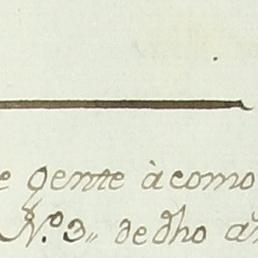 e gente à como
N.º 3,, de dho a